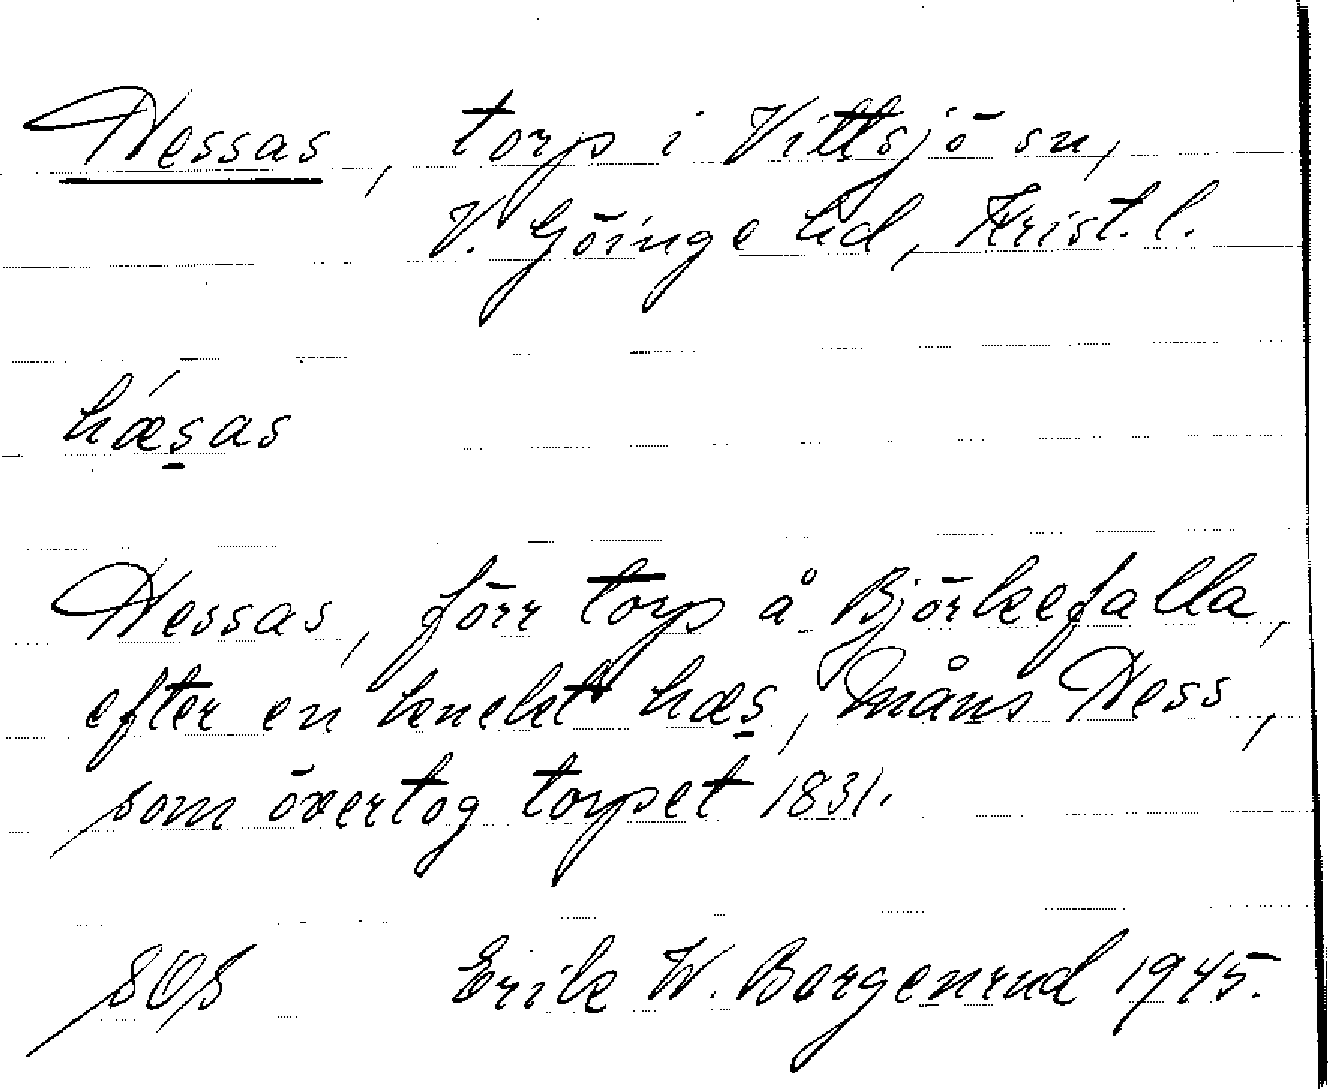 Hessas, torp i Vittsjö sn,
V. Göinge hd, Krist. l.
hǽs̱as
Hessas, förr torp å Björkefalla,
efter en knekt hæs̱, Måns Hess,
som övertog torpet 1831.
SOS Erik W. Borgenrud 1945.